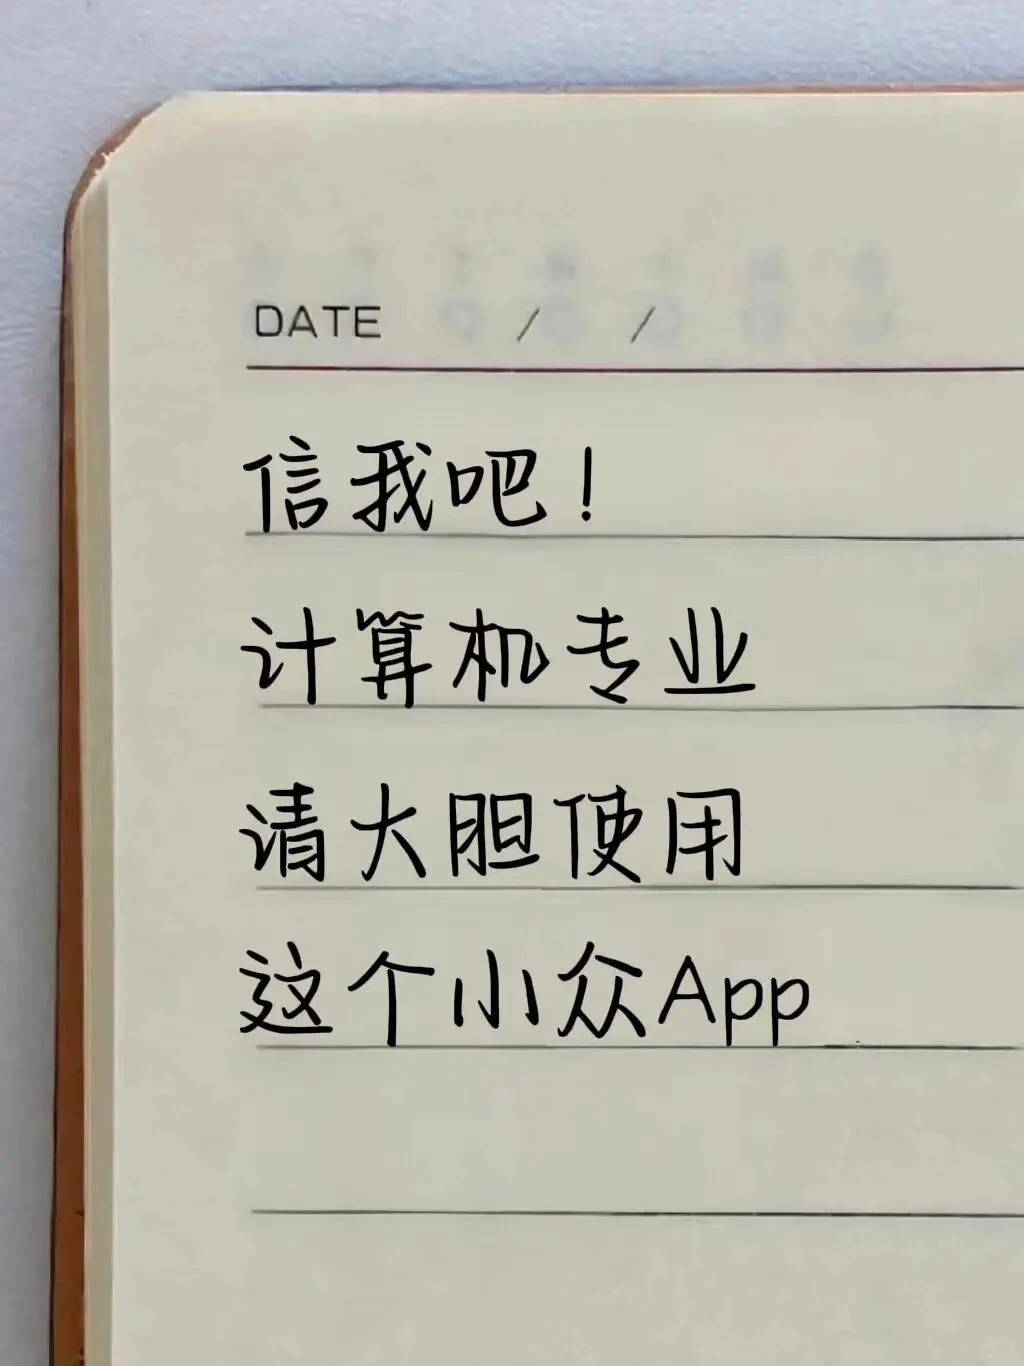 DATE / /
信我吧！
计算机专业
请大胆使用
这个小众App